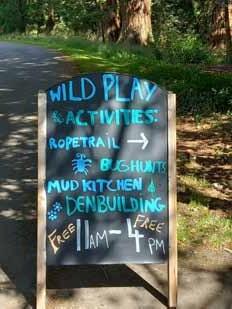 WILD PLAY
& ACTIVITIES:
ROPETRAIL →
BUGHUNTS
MUD KITCHEN
DENBUILDING
FREE 11AM-4PM FREE